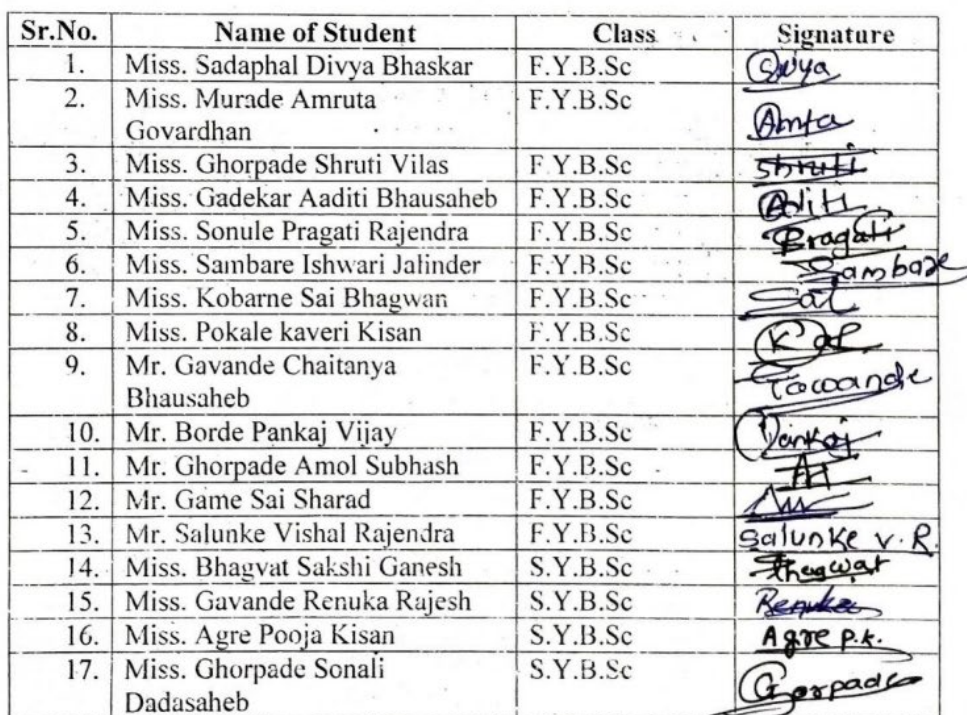 Sr.No. Name of Student Class Signature
1. Miss. Sadaphal Divya Bhaskar F.Y.B.Sc Divya
2. Miss. Murade Amruta F.Y.B.Sc
Govardhan Amta
3. Miss. Ghorpade Shruti Vilas F.Y.B.Sc Shruti
4. Miss. Gadekar Aaditi Bhausaheb F.Y.B.Sc Aditi
5. Miss. Sonule Pragati Rajendra F.Y.B.Sc Pragati
6. Miss. Sambare Ishwari Jalinder F.Y.B.Sc Sambare
7. Miss. Kobarne Sai Bhagwan F.Y.B.Sc Sai
8. Miss. Pokale kaveri Kisan F.Y.B.Sc
9. Mr. Gavande Chaitanya F.Y.B.Sc
Bhausaheb
10. Mr. Borde Pankaj Vijay F.Y.B.Sc Pankaj
11. Mr. Ghorpade Amol Subhash F.Y.B.Sc
12. Mr. Game Sai Sharad F.Y.B.Sc
13. Mr. Salunke Vishal Rajendra F.Y.B.Sc Salunke V. R.
14. Miss. Bhagvat Sakshi Ganesh S.Y.B.Sc Bhagwat
15. Miss. Gavande Renuka Rajesh S.Y.B.Sc Renuka
16. Miss. Agre Pooja Kisan S.Y.B.Sc Agre P.K.
17. Miss. Ghorpade Sonali S.Y.B.Sc
Dadasaheb Gorpade